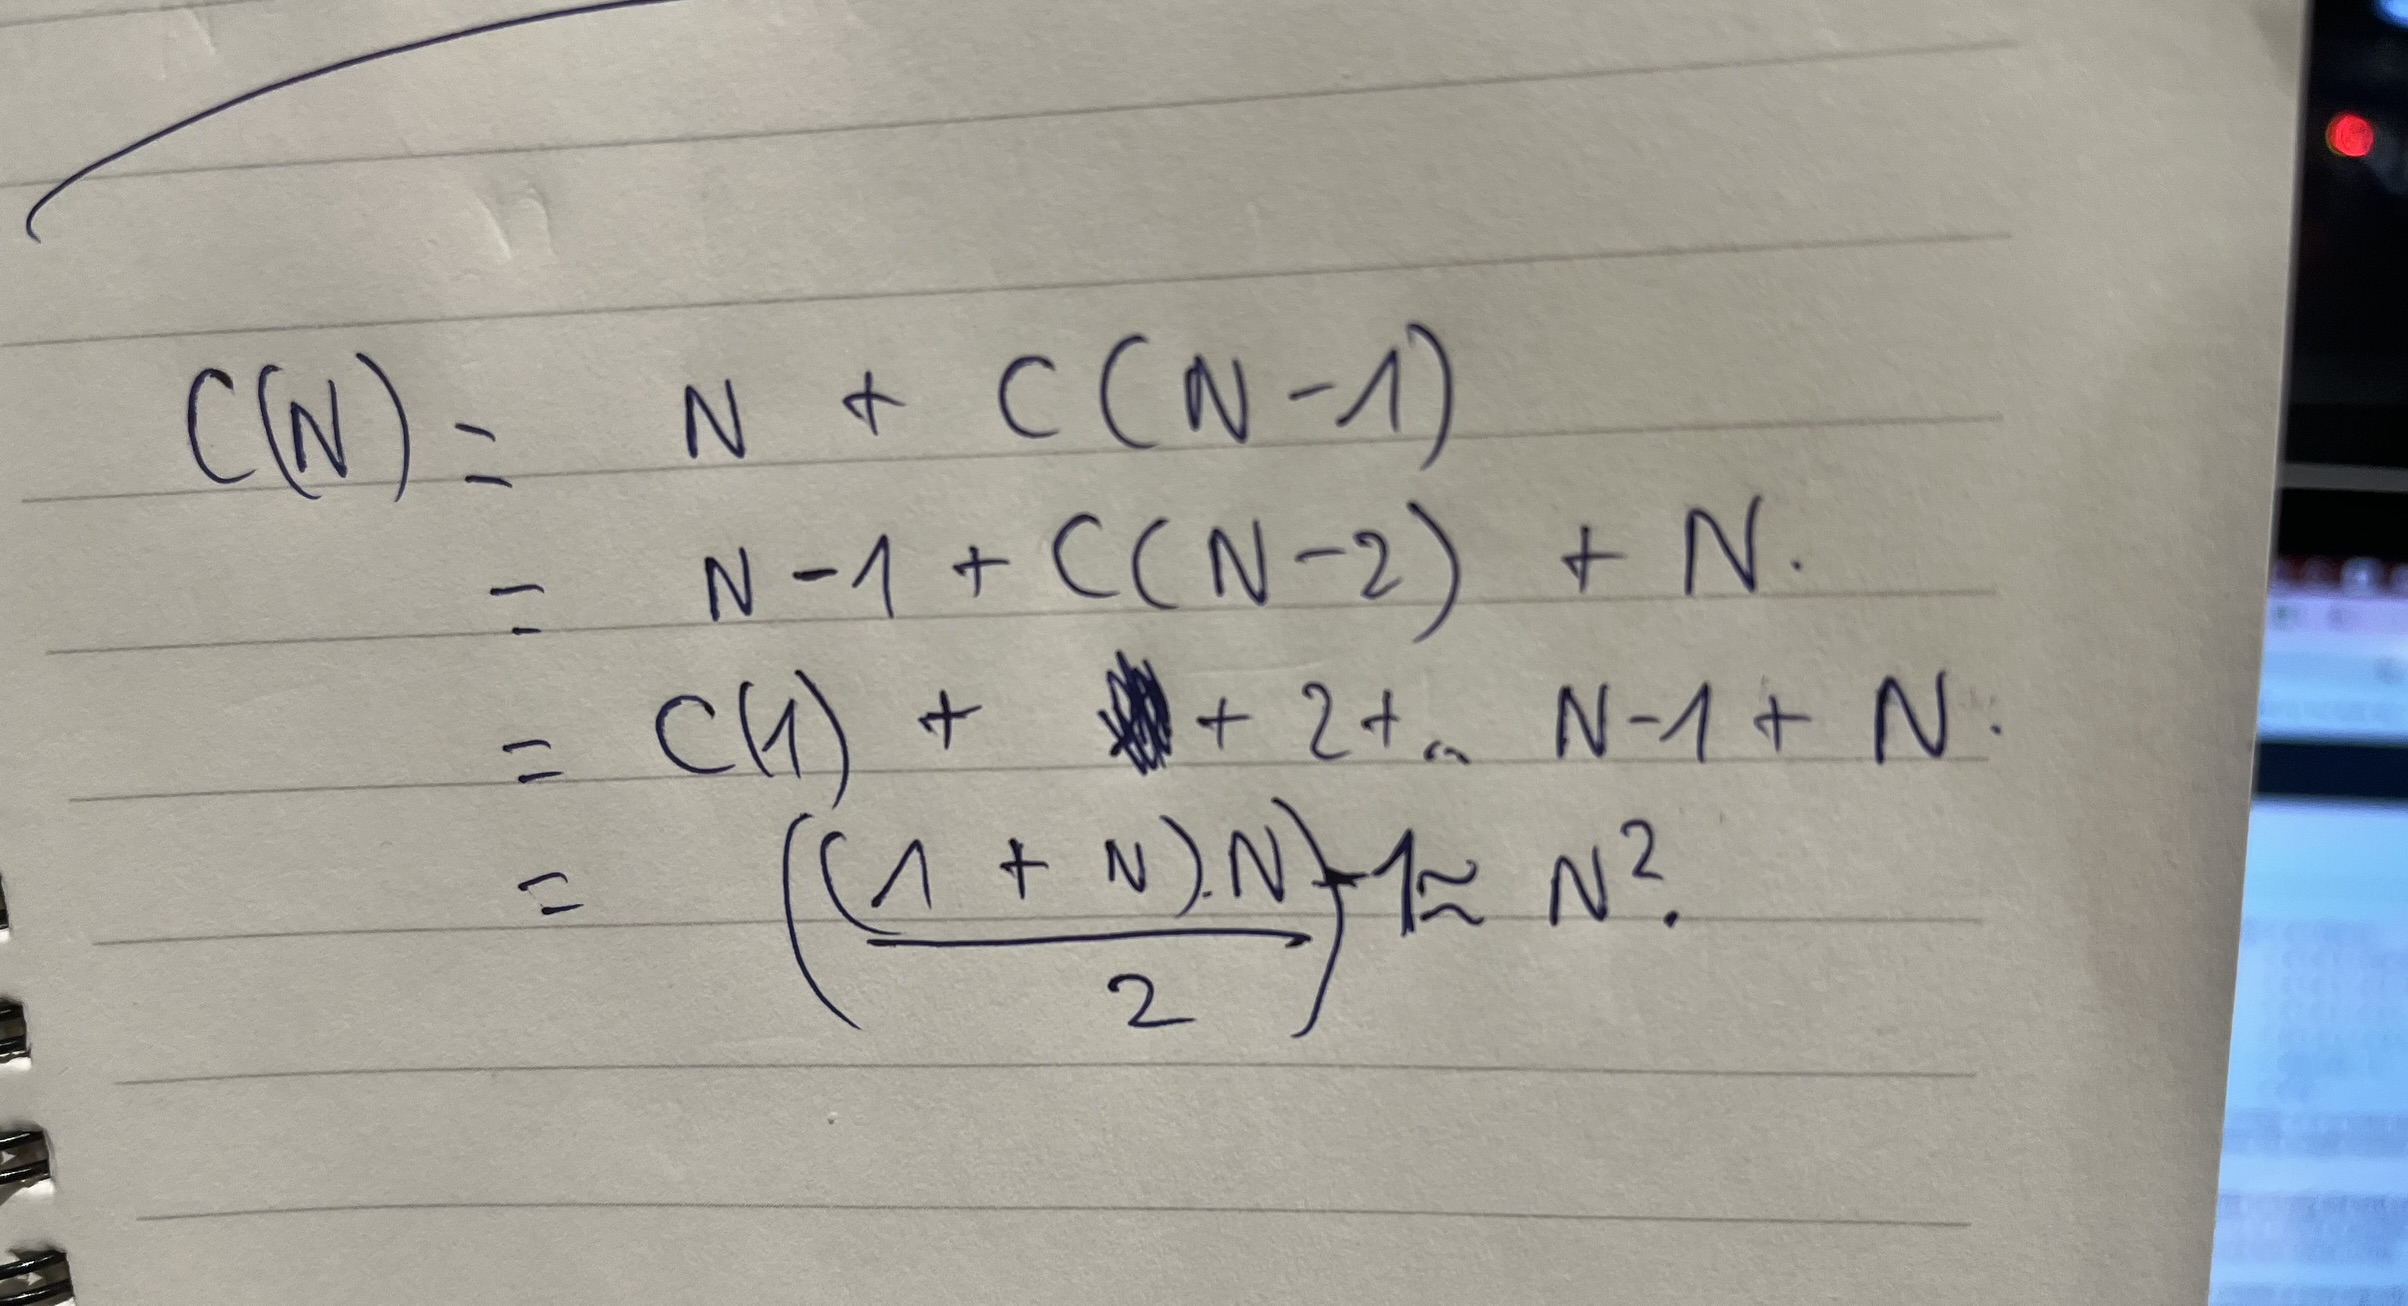 C(N) = N + C(N-1)
= N-1 + C(N-2) + N.
= C(1) + + 2+ .. N-1 + N.
= ((1 + N).N / 2) -1 ≈ N².